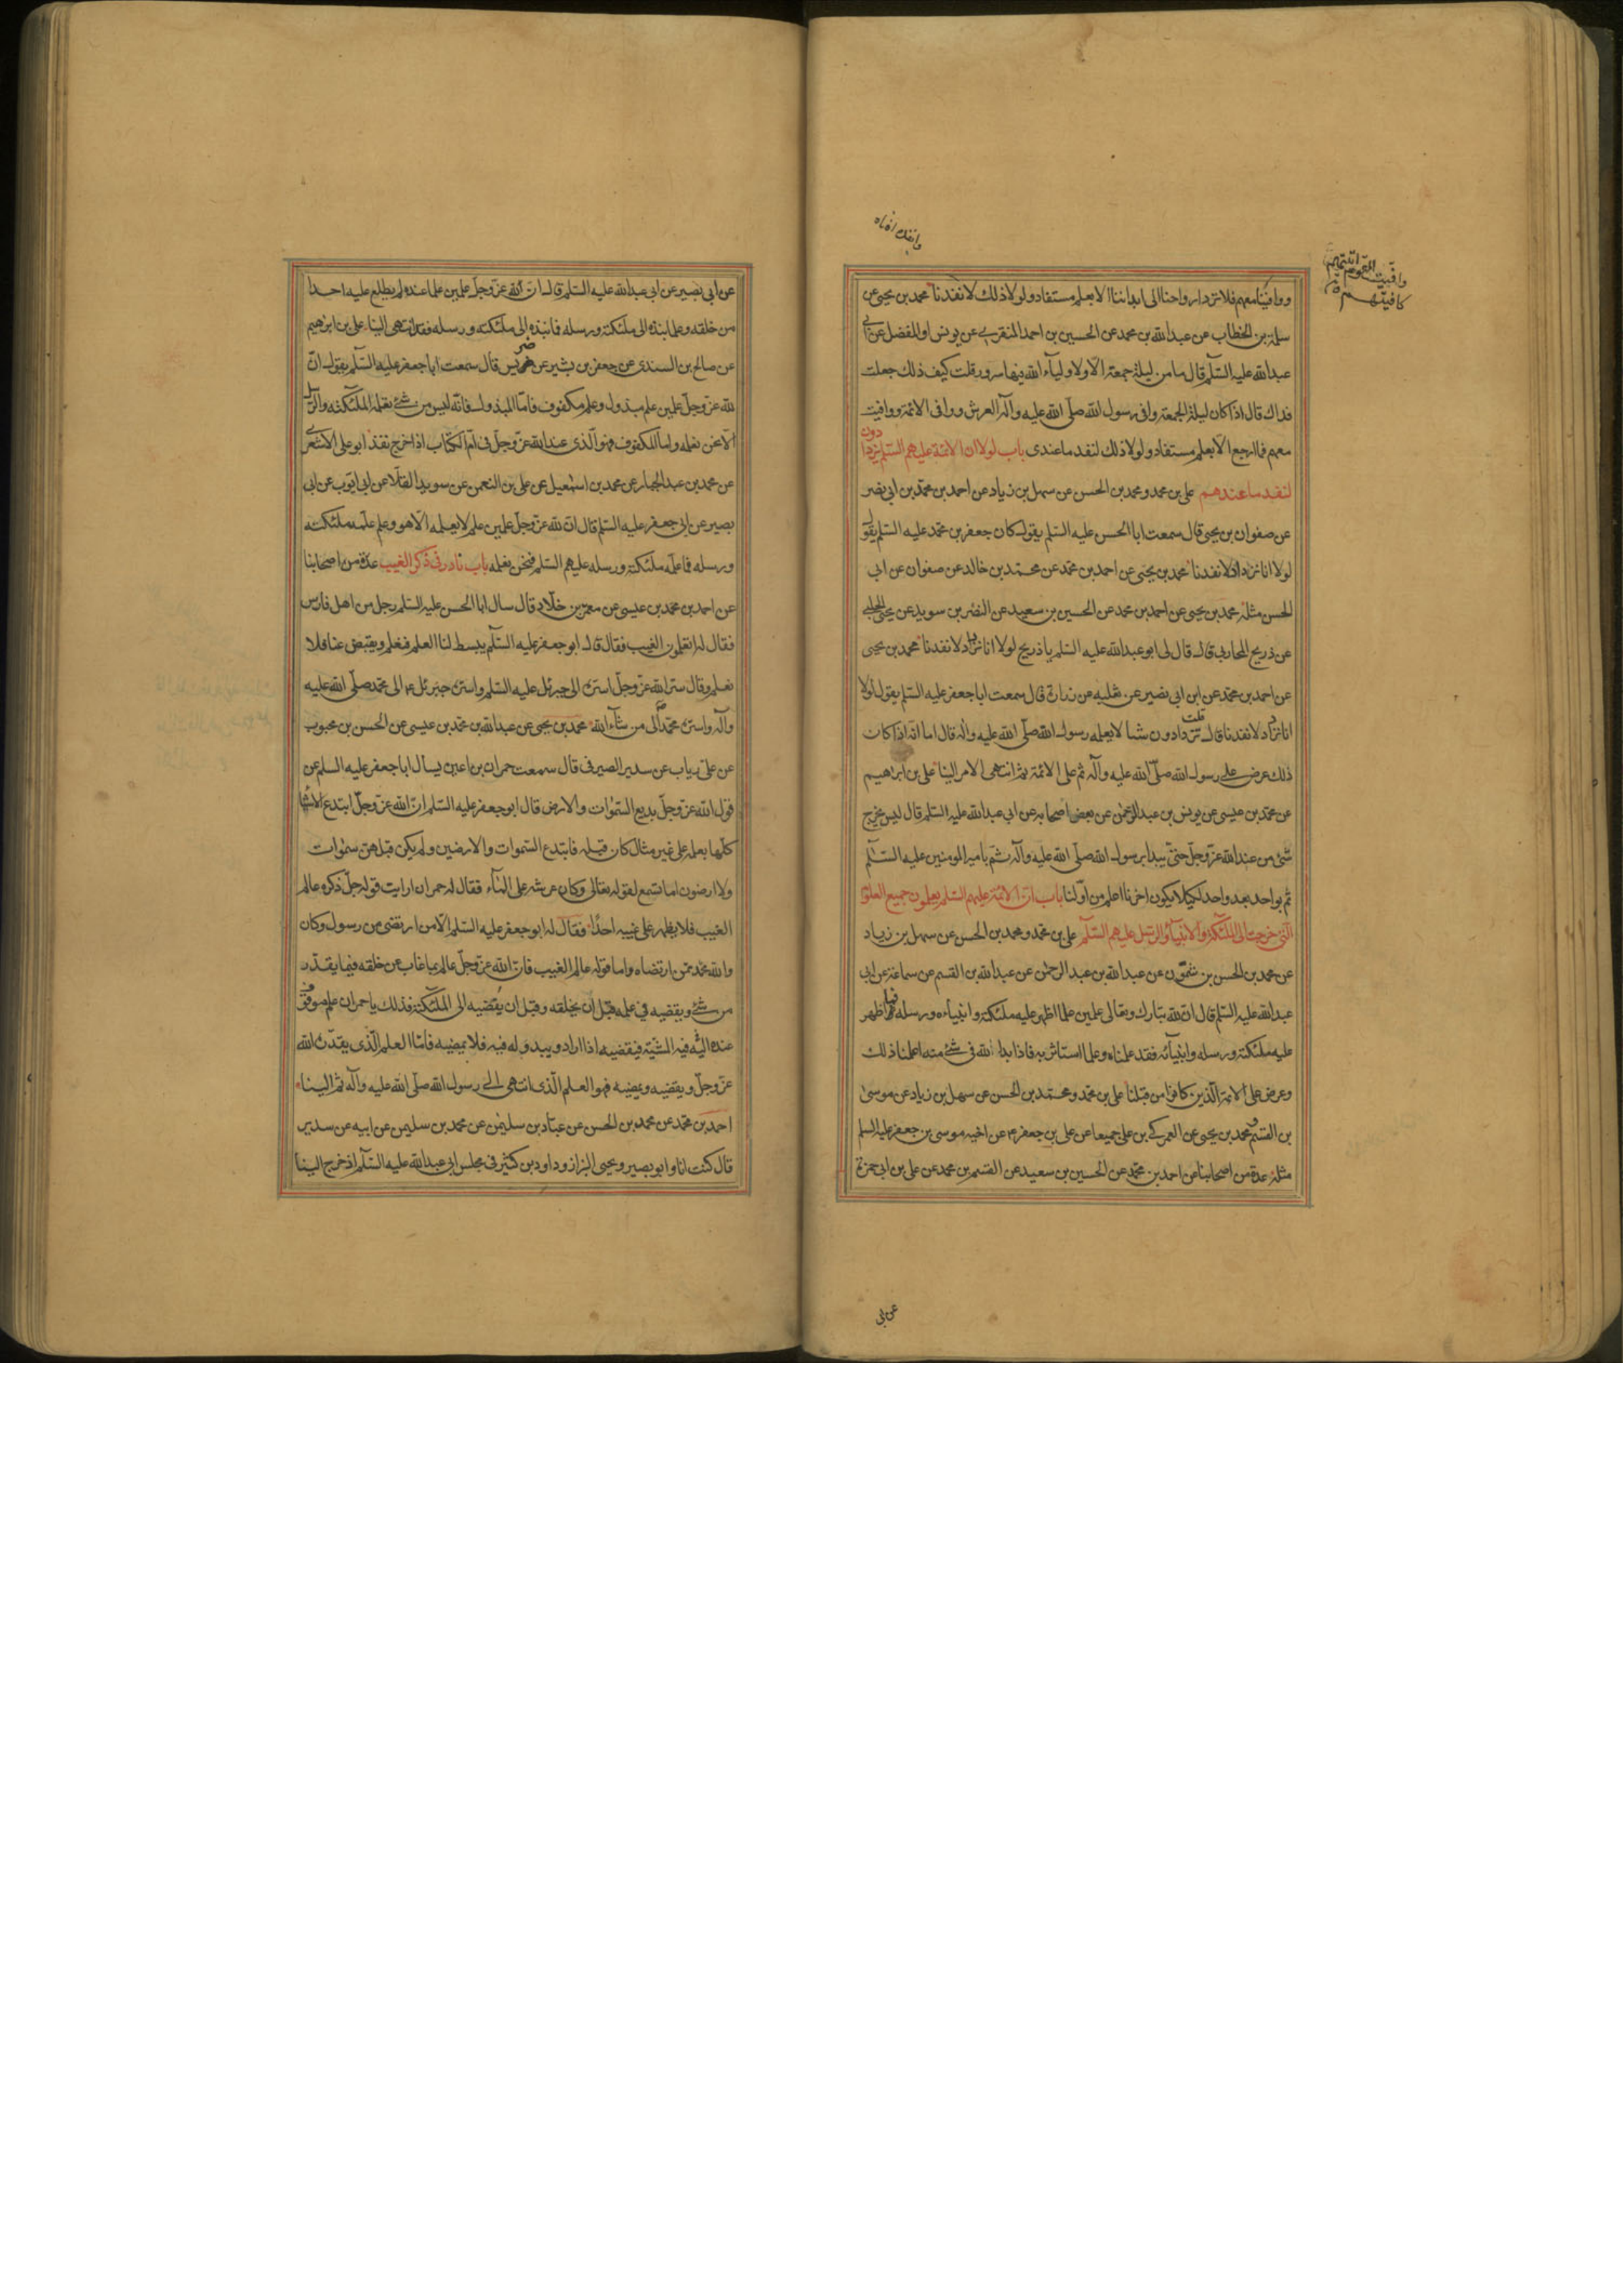 وانفك افناه
وافيت القوم اتيتهم
كافيتهم ق
ووافينا معهم فلا ترد ارواحنا الى ابداننا الا بعلم مستفاد ولولا ذلك لانفدنا محمد بن يحيى عن
سلمة بن الخطاب عن عبدالله بن محمد عن الحسين بن احمد المنقري عن يونس او المفضل عن ابي
عبدالله عليه السّلم قال ما من ليلة جمعة الا ولاولياء الله فيها سرور قلت كيف ذلك جعلت
فداك قال اذا كان ليلة الجمعة وافى رسول الله صلّى الله عليه وآله العرش ووافى الائمة ووافيت
معهم فما ارجع الا بعلم مستفاد ولولا ذلك لنفد ما عندى باب لولا ان الائمة عليهم السّلم يزدادون
لنفد ما عندهم على بن محمد ومحمد بن الحسن عن سهل بن زياد عن احمد بن محمد بن ابى نصر
عن صفوان بن يحيى قال سمعت ابا الحسن عليه السّلم يقول كان جعفر بن محمد عليه السّلم يقول
لولا انا نزداد لانفدنا محمد بن يحيى عن احمد بن محمد عن محمد بن خالد عن صفوان عن ابى
الحسن مثله محمد بن يحيى عن احمد بن محمد عن الحسين بن سعيد عن النضر بن سويد عن يحيى الحلبي
عن ذريح المحاربى قال قال لى ابو عبدالله عليه السّلم يا ذريح لولا انا نزداد لانفدنا محمد بن يحيى
عن احمد بن محمد عن ابن ابى نصير عن ثعلبه عن زرارة قال سمعت ابا جعفر عليه السّلم يقول لولا
انا نزداد لانفدنا قال قلت تزدادون شيأ لا يعلمه رسول الله صلّى الله عليه وآله قال اما انه اذا كان
ذلك عرض على رسول الله صلّى الله عليه وآله ثم على الائمة ثم انتهى الامر الينا على بن ابراهيم
عن محمد بن عيسى عن يونس بن عبدالرحمن عن بعض اصحابه عن ابى عبدالله عليه السّلم قال ليس يخرج
شئ من عند الله عزّ وجلّ حتى يبدا برسول الله صلّى الله عليه وآله ثم بامير المومنين عليه السّلم
ثم بواحد بعد واحد لكيلا يكون اخرنا اعلم من اوّلنا باب انّ الائمة عليهم السّلم يعلمون جميع العلوم
التى خرجت الى الملئكة والانبياء والرسل عليهم السّلم على بن محمد ومحمد بن الحسن عن سهل بن زياد
عن محمد بن الحسن بن شمون عن عبدالله بن عبدالرحمن عن عبدالله بن القسم عن سماعة عن ابى
عبدالله عليه السّلم قال ان لله تبارك وتعالى علمين علما اظهر عليه ملئكته وانبياءه ورسله فما اظهر
عليه ملئكته ورسله وانبيائه فقد علمناه وعلما استاثر به فاذا بدا لله فى شئ منه اعلمنا ذلك
وعرض على الائمة الّذين كانوا من قبلنا على بن محمد ومحمد بن الحسن عن سهل بن زياد عن موسى
بن القسم ومحمد بن يحيى عن العمركى بن على جميعا عن على بن جعفر عن اخيه موسى بن جعفر عليه السلم
مثله عدة من اصحابنا عن احمد بن محمد عن الحسين بن سعيد عن القسم بن محمد عن على بن ابى حمزة
عن ابى
عن ابى بصير عن ابى عبدالله عليه السّلم قال ان لله عزّ وجلّ علمين علما عنده لم يطلع عليه احدا
من خلقه وعلما نبذه الى ملئكته ورسله فما نبذه الى ملئكته ورسله فقد انتهى الينا على بن ابرهيم
عن صالح بن السندى عن جعفر بن بشير عن ضريس قال سمعت ابا جعفر عليه السّلم يقول انّ
لله عزّ وجلّ علمين علم مبذول وعلم مكفوف فامّا المبذول فانّه ليس من شئ يعلمه الملئكة والرّسل
الّا نحن نعلمه واما المكفوف فهو الّذى عند الله عزّ وجلّ فى امّ الكتاب اذا خرج نفذ ابو على الاشعرى
عن محمد بن عبدالجبار عن محمد بن اسمعيل عن على بن النعمن عن سويد القلّا عن ابى ايّوب عن ابى
بصير عن ابى جعفر عليه السّلم قال انّ لله عزّ وجلّ علمين علم لا يعلمه الّا هو وعلم علّمه ملئكته
ورسله فما علّمه ملئكته ورسله عليهم السّلم فنحن نعلمه باب نادر فى ذكر الغيب عدّة من اصحابنا
عن احمد بن محمد بن عيسى عن معمر بن خلّاد قال سال ابا الحسن عليه السّلم رجل من اهل فارس
فقال له اتعلمون الغيب فقال قال ابو جعفر عليه السّلم يبسط لنا العلم فنعلم ويقبض عنا فلا
نعلم وقال سرّ الله عزّ وجلّ اسرّه الى جبرئل عليه السّلم واسرّه جبرئل ع الى محمد صلّى الله عليه
وآله واسرّه محمد الى من شاء الله محمد بن يحيى عن عبدالله بن محمد بن عيسى عن الحسن بن محبوب
عن على بن رئاب عن سدير الصيرفى قال سمعت حمران بن اعين يسال ابا جعفر عليه السلم عن
قول الله عزّ وجلّ بديع السّموات والارض قال ابو جعفر عليه السّلم انّ الله عزّ وجلّ ابتدع الاشيا
كلّها بعلمه على غير مثال كان قبله فابتدع السّموات والارضين ولم يكن قبلهنّ سموات
ولا ارضون اما تسمع لقوله تعالى وكان عرشه على الماء فقال له حمران ارايت قوله جلّ ذكره عالم
الغيب فلا يظهر على غيبه احدا فقال له ابو جعفر عليه السّلم الّا من ارتضى من رسول وكان
والله محمد ممّن ارتضاه واما قوله عالم الغيب فانّ الله عزّ وجلّ عالم بما غاب عن خلقه فيما يقدّر
من شئ ويقضيه فى علمه قبل ان يخلقه وقبل ان يقضيه الى الملئكة فذلك يا حمران علم موقوف
عنده اليه فيه المشيّة فيقضيه اذا اراد ويبدو له فيه فلا يمضيه فامّا العلم الّذى يقدّره الله
عزّ وجلّ ويقضيه ويمضيه فهو العلم الّذى انتهى الى رسول الله صلّى الله عليه وآله ثم الينا
احمد بن محمد عن محمد بن الحسن عن عبّاد بن سليمن عن محمد بن سليمن عن ابيه عن سدير
قال كنت انا وابو بصير ويحيى البزاز وداود بن كثير فى مجلس ابى عبدالله عليه السّلم اذ خرج الينا